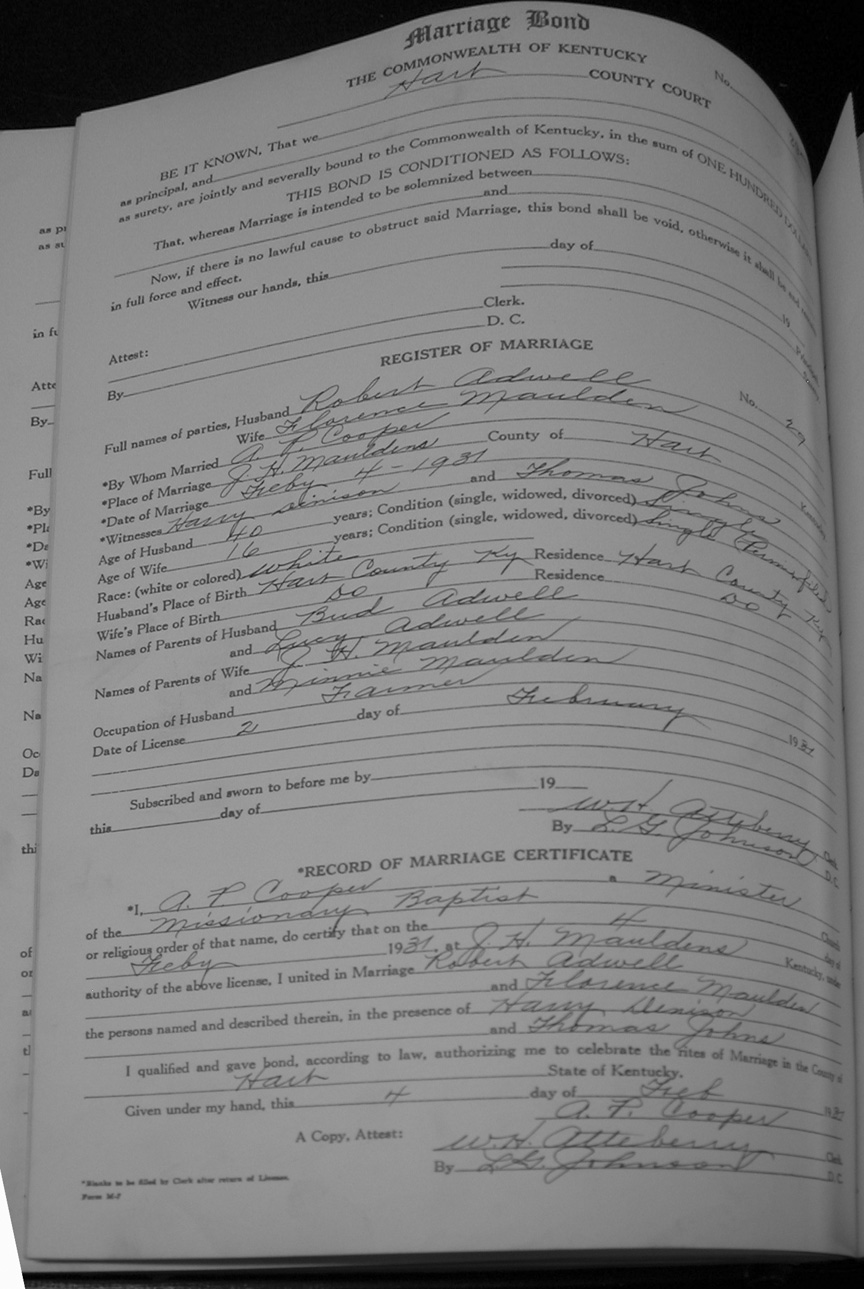 Marriage Bond
THE COMMONWEALTH OF KENTUCKY
No.
Hart COUNTY COURT
BE IT KNOWN, That we
as principal, and
as surety, are jointly and severally bound to the Commonwealth of Kentucky, in the sum of ONE HUNDRED DOLLARS
THIS BOND IS CONDITIONED AS FOLLOWS:
That, whereas Marriage is intended to be solemnized between
and
Now, if there is no lawful cause to obstruct said Marriage, this bond shall be void, otherwise it shall be and
in full force and effect.
Witness our hands, this day of 19
Clerk.
Attest: D. C.
By
REGISTER OF MARRIAGE
No. 29
Full names of parties, Husband Robert Adwell
Wife Florence Maulden
*By Whom Married A. P. Cooper
*Place of Marriage J. H. Mauldens County of Hart Kentucky
*Date of Marriage Feby 4 - 1931
*Witnesses Harry Denison and Thomas Johns
Age of Husband 40 years; Condition (single, widowed, divorced) Single
Age of Wife 16 years; Condition (single, widowed, divorced) Single
Race: (white or colored) White
Husband's Place of Birth Hart County Ky Residence Hart County Ky
Wife's Place of Birth Do Residence Do
Names of Parents of Husband Bud Adwell
and Lucy Adwell
Names of Parents of Wife J. H. Maulden
and Minnie Maulden
Occupation of Husband Farmer
Date of License 2 day of February 1931
Subscribed and sworn to before me by
this day of 19
W. H. Atteberry Clerk
By L. G. Johnson D. C.
*RECORD OF MARRIAGE CERTIFICATE
*I, A. P. Cooper a Minister
of the Missionary Baptist Church
or religious order of that name, do certify that on the 4 day of
Feby 1931, at J. H. Mauldens Kentucky, under
authority of the above license, I united in Marriage Robert Adwell
and Florence Maulden
the persons named and described therein, in the presence of Harry Denison
and Thomas Johns
I qualified and gave bond, according to law, authorizing me to celebrate the rites of Marriage in the County of
Hart State of Kentucky.
Given under my hand, this 4 day of Feb 1931
A. P. Cooper
A Copy, Attest: W. H. Atteberry Clerk
By L. G. Johnson D. C.
*Blanks to be filled by Clerk after return of License.